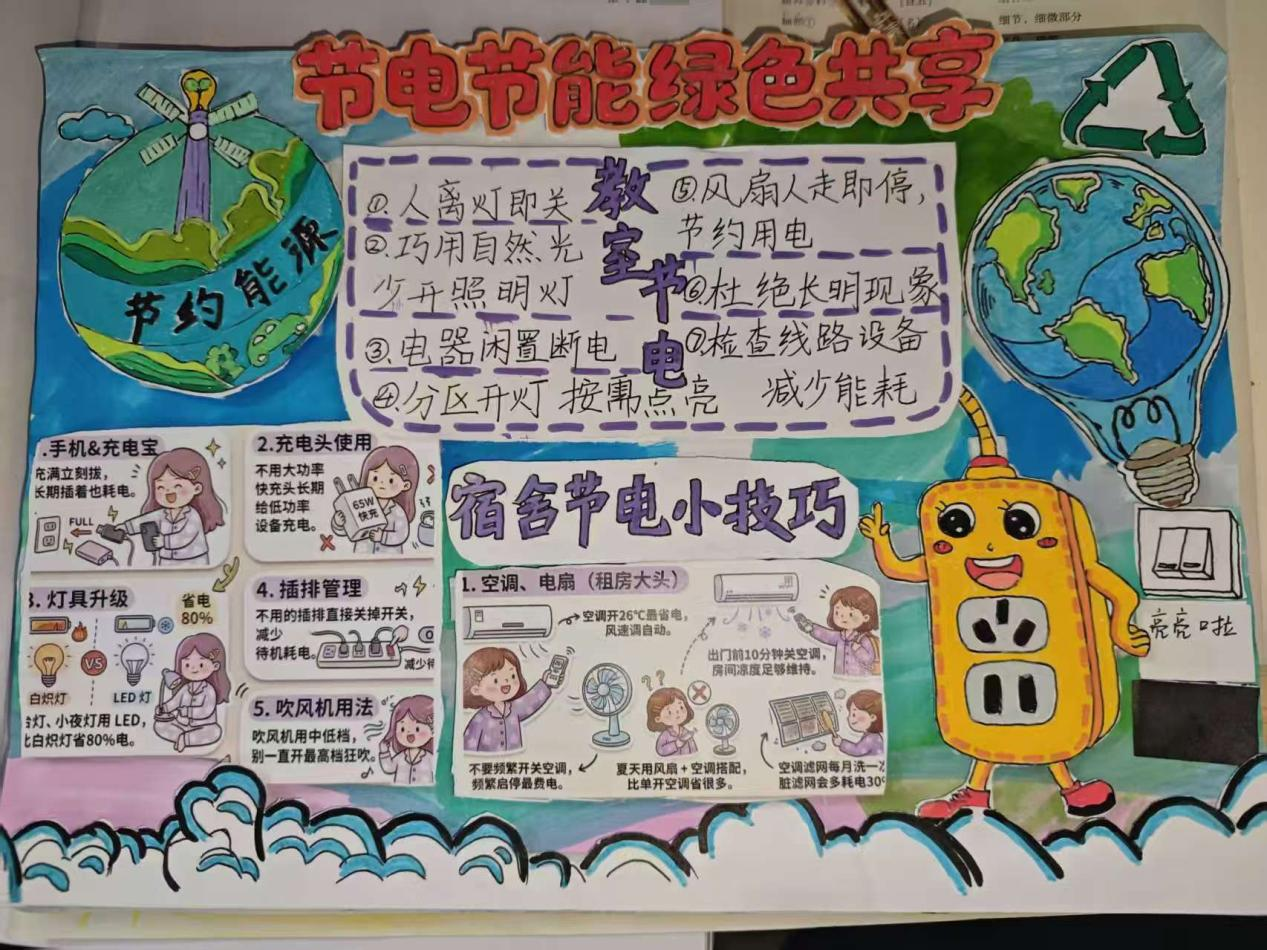 细节，细微部分
节电节能绿色共享
节约能源
教室节电
①.人离灯即关
②.巧用自然光
少开照明灯
③.电器闲置断电
④.分区开灯 按需点亮
⑤风扇人走即停，
节约用电
⑥杜绝长明现象
⑦检查线路设备
减少能耗
.手机&充电宝
充满立刻拔，
长期插着也耗电。
FULL
2.充电头使用
不用大功率
快充头长期
给低功率
设备充电。
65W
快充
3. 灯具升级
省电
80%
VS
白炽灯
LED 灯
台灯、小夜灯用 LED，
比白炽灯省80%电。
4. 插排管理
不用的插排直接关掉开关，
减少
待机耗电。
减少待
5. 吹风机用法
吹风机用中低档，
别一直开最高档狂吹。
宿舍节电小技巧
1. 空调、电扇（租房大头）
空调开26℃最省电，
风速调自动。
出门前10分钟关空调，
房间凉度足够维持。
? ?
不要频繁开关空调，
频繁启停最费电。
夏天用风扇 + 空调搭配，
比单开空调省很多。
空调滤网每月洗一次
脏滤网会多耗电30%
亮亮啦